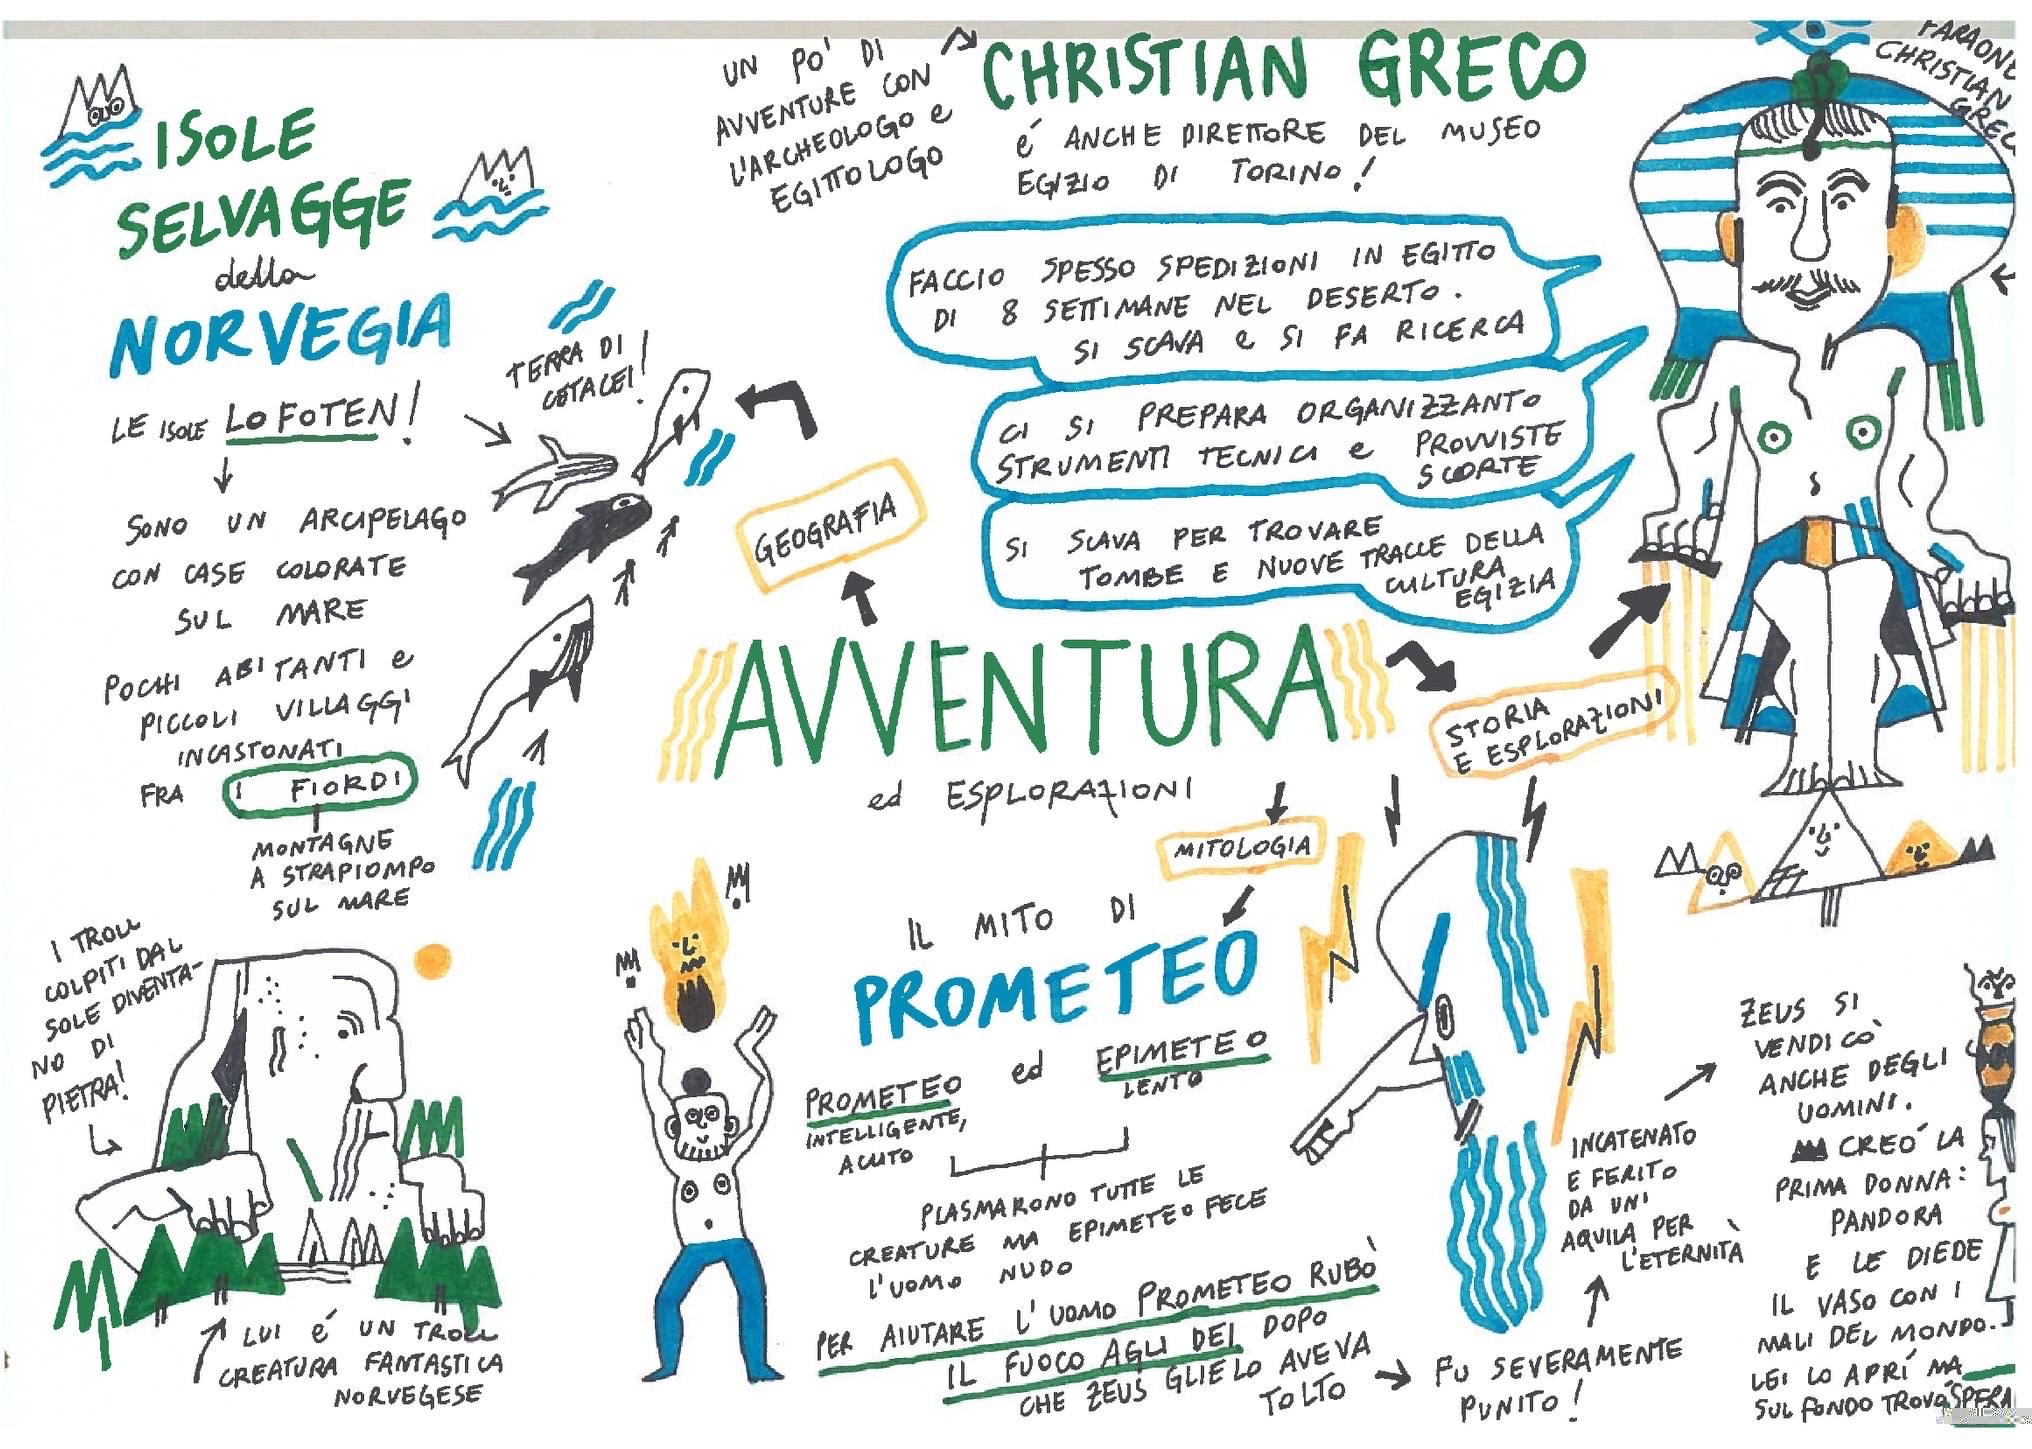 ISOLE
SELVAGGE
della
NORVEGIA
LE ISOLE LOFOTEN!
SONO UN ARCIPELAGO
CON CASE COLORATE
SUL MARE
POCHI ABITANTI e
PICCOLI VILLAGGI
INCASTONATI
FRA I FIORDI
MONTAGNE
A STRAPIOMPO
SUL MARE
TERRA DI
CETACEI!
I TROLL
COLPITI DAL
SOLE DIVENTA-
NO DI
PIETRA!
LUI é UN TROLL
CREATURA FANTASTICA
NORVEGESE
GEOGRAFIA
AVVENTURA
ed ESPLORAZIONI
UN PO' DI
AVVENTURE CON
L'ARCHEOLOGO e
EGITTOLOGO
CHRISTIAN GRECO
é ANCHE DIRETTORE DEL MUSEO
EGIZIO DI TORINO!
FACCIO SPESSO SPEDIZIONI IN EGITTO
DI 8 SETTIMANE NEL DESERTO.
SI SCAVA e SI FA RICERCA
CI SI PREPARA ORGANIZZANTO
STRUMENTI TECNICI e PROVVISTE
SCORTE
SI SCAVA PER TROVARE
TOMBE E NUOVE TRACCE DELLA
CULTURA
EGIZIA
FARAONE
CHRISTIAN
GREC
STORIA
E ESPLORAZIONI
MITOLOGIA
IL MITO DI
PROMETEO
PROMETEO ed EPIMETEO
INTELLIGENTE,
ACUTO
LENTO
PLASMARONO TUTTE LE
CREATURE MA EPIMETEO FECE
L'UOMO NUDO
PER AIUTARE L'UOMO PROMETEO RUBÒ
IL FUOCO AGLI DEI DOPO
CHE ZEUS GLIELO AVEVA
TOLTO
FU SEVERAMENTE
PUNITO!
INCATENATO
E FERITO
DA UN'
AQUILA PER
L'ETERNITÀ
ZEUS SI
VENDICÒ
ANCHE DEGLI
UOMINI.
CREÓ LA
PRIMA DONNA:
PANDORA
E LE DIEDE
IL VASO CON I
MALI DEL MONDO.
LEI LO APRÍ MA
SUL FONDO TROVÒ SPERA